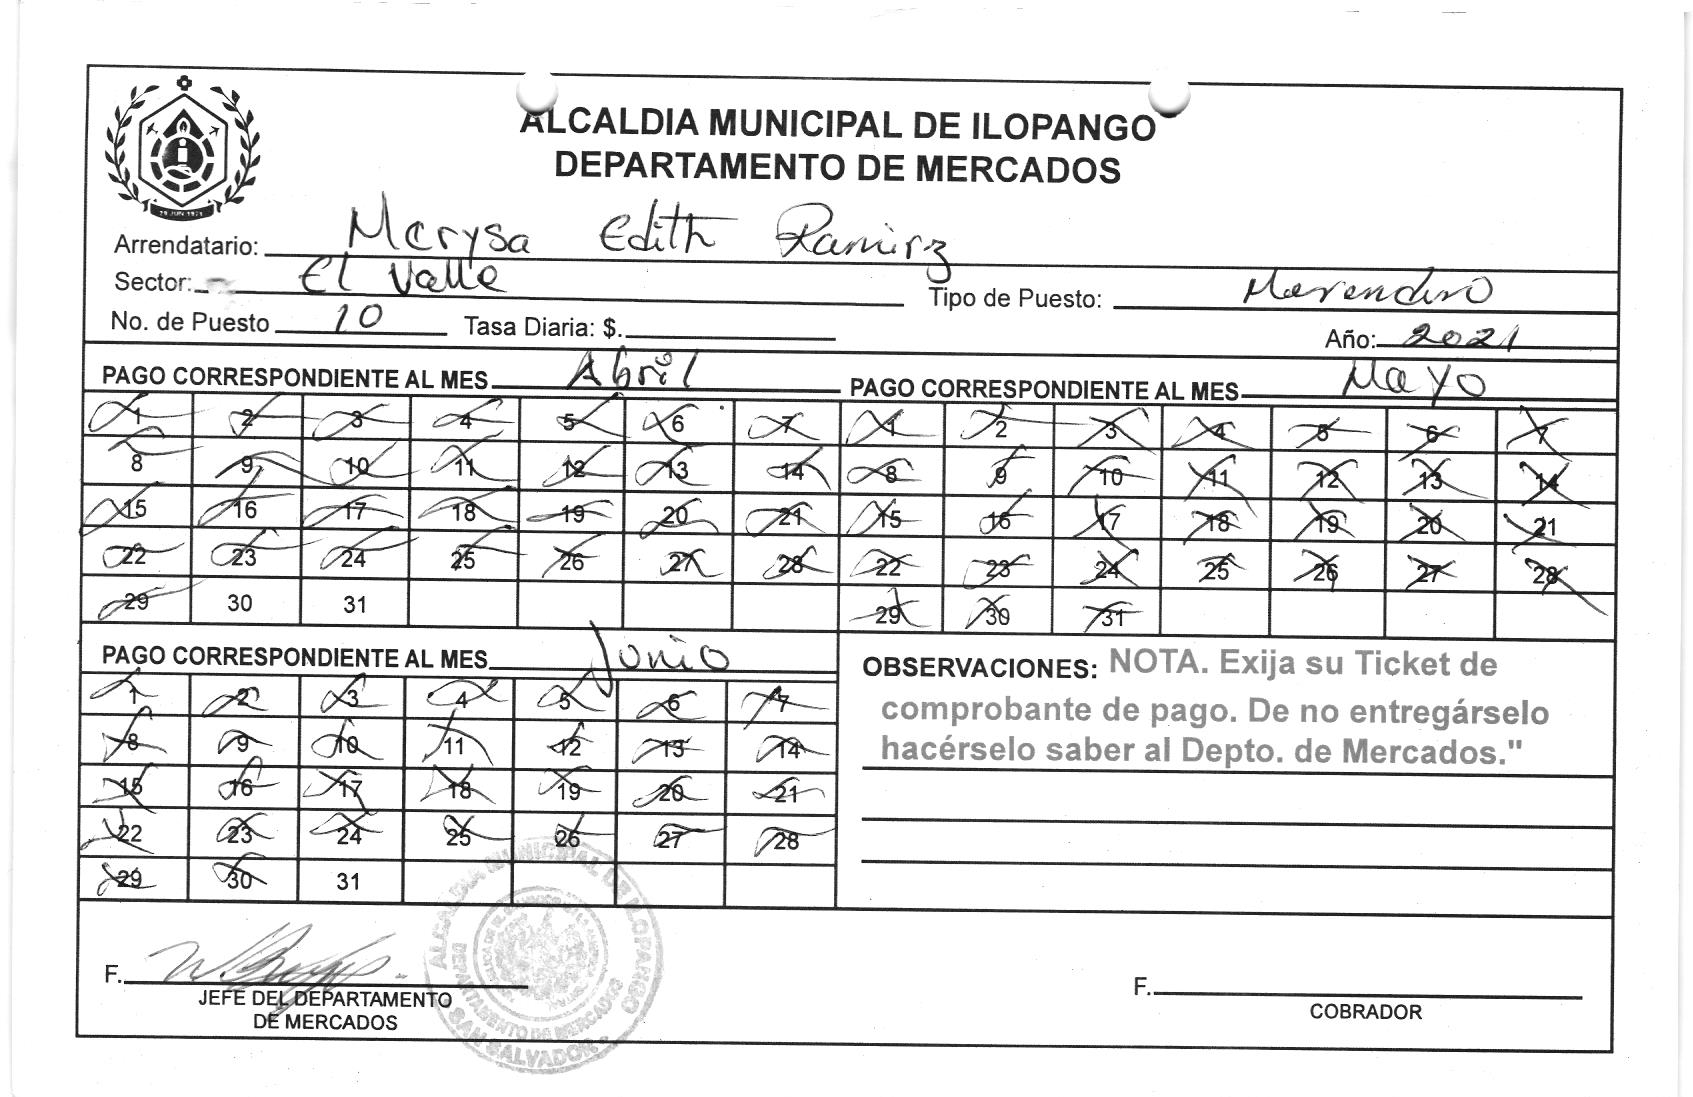 ALCALDIA MUNICIPAL DE ILOPANGO
DEPARTAMENTO DE MERCADOS
Arrendatario: Merysa Edith Ramirz
Sector: El Valle Tipo de Puesto: Merendero
No. de Puesto 10 Tasa Diaria: $. Año: 2021
PAGO CORRESPONDIENTE AL MES Abril
1 2 3 4 5 6 7
8 9 10 11 12 13 14
15 16 17 18 19 20 21
22 23 24 25 26 27 28
29 30 31
PAGO CORRESPONDIENTE AL MES Mayo
1 2 3 4 5 6 7
8 9 10 11 12 13 14
15 16 17 18 19 20 21
22 23 24 25 26 27 28
29 30 31
PAGO CORRESPONDIENTE AL MES Junio
1 2 3 4 5 6 7
8 9 10 11 12 13 14
15 16 17 18 19 20 21
22 23 24 25 26 27 28
29 30 31
OBSERVACIONES: NOTA. Exija su Ticket de
comprobante de pago. De no entregárselo
hacérselo saber al Depto. de Mercados."
F.
JEFE DEL DEPARTAMENTO
DE MERCADOS
ALCALDIA MUNICIPAL DE ILOPANGO
DEPARTAMENTO DE MERCADOS
SAN SALVADOR
F.
COBRADOR